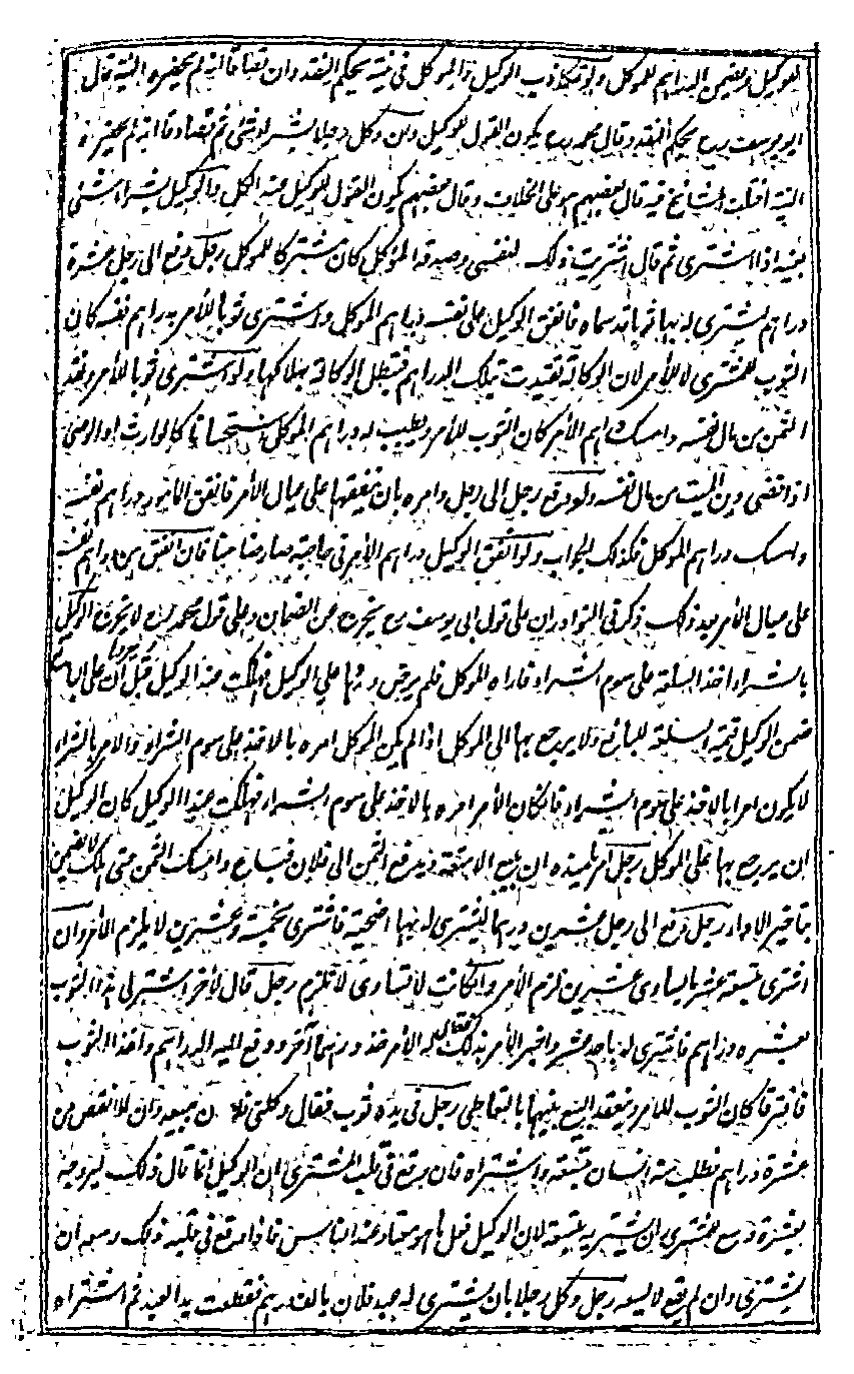 للوكيل ويضمن الدراهم للموكل ولو تكاذب الوكيل والموكل في نيته يحكم النقد وان تصادقا انه لم يحضره النية قال
ابو يوسف رح يحكم النقد وقال محمد رح يكون القول للوكيل وان وكل رجلا بشراء شئ ثم تصادقا انه لم يحضره
النية اختلف المشايخ فيه قال بعضهم هو على الخلاف وقال بعضهم يكون القول للوكيل عند الكل والوكيل بشراء شئ
بعينه اذا اشترى ثم قال اشتريت ذلك لنفسي وصدقه الموكل كان مشتركا للموكل رجل دفع الى رجل عشرة
دراهم يشترى له بها ثوبا قد سماه فانفق الوكيل على نفسه دراهم الموكل واشترى ثوبا للأمر بدراهم نفسه كان
الثوب للمشترى لا للأمر لان الوكالة تقيدت بتلك الدراهم فتبطل الوكالة بهلاكها ولو اشترى ثوبا للأمر ونقد
الثمن من مال نفسه وامسك دراهم الأمر كان الثوب للأمر ويطيب له دراهم الموكل استحسانا كالوارث او الوصي
اذا قضى دين الميت من مال نفسه ولو دفع رجل الى رجل وامره بان ينفقها على عيال الأمر فانفق المأمور دراهم نفسه
وامسك دراهم الموكل فكذلك الجواب ولو انفق الوكيل دراهم الأمر في حاجته صار ضامنا فان انفق من دراهم نفسه
على عيال الأمر بعد ذلك ذكر في النوادر ان على قول ابي يوسف رح يخرج عن الضمان وعلى قول محمد رح لا يخرج الوكيل
بالشراء اخذ السلعة على سوم الشراء فاراه الموكل فلم يرض وردها على الوكيل فهلكت عند الوكيل قبل ان يردها على البائع
ضمن الوكيل قيمة السلعة للبائع ولا يرجع بها الى الموكل اذا لم يكن الموكل امره بالاخذ على سوم الشراء والامر بالشراء
لا يكون امرا بالاخذ على سوم الشراء فان كان الأمر امره بالاخذ على سوم الشراء فهلكت عند الوكيل كان للوكيل
ان يرجع بها على الموكل رجل امر تلميذه ان يبيع الامتعة ويدفع الثمن الى فلان فباع وامسك الثمن حتى هلك لا يضمن
بتاخير الاداء رجل دفع الى رجل عشرين درهما ليشترى له بها اضحية فاشترى بخمسة وعشرين لا يلزم الأمر وان
اشترى بتسعة عشر ما يساوى عشرين لزم الأمر وان كانت لا تساوى لا تلزم رجل قال لأخر اشتر لي هذا الثوب
بعشرة دراهم فاشترى له باحد عشر واخبر الأمر بذلك فقال له الأمر خذ درهما آخر ودفع اليه الدراهم واخذ الثوب
فافترقا كان الثوب للأمر وينعقد البيع بينهما بالتعاطي رجل في يده ثوب فقال وكلني فلان ببيعه وان لا انقص من
عشرة دراهم فطلب منه انسان بتسعة واشتراه فان وقع في قلب المشترى ان الوكيل انما قال ذلك ليروجه
بعشرة وسع للمشترى ان يشتريه بتسعة لان الوكيل فعل ما هو معتاد عند الناس فاذا وقع في قلبه ذلك وسعه ان
يشترى وان لم يقع لا يسعه رجل وكل رجلا بان يشترى له عبد فلان بالف درهم فقطعت يد العبد ثم اشتراه